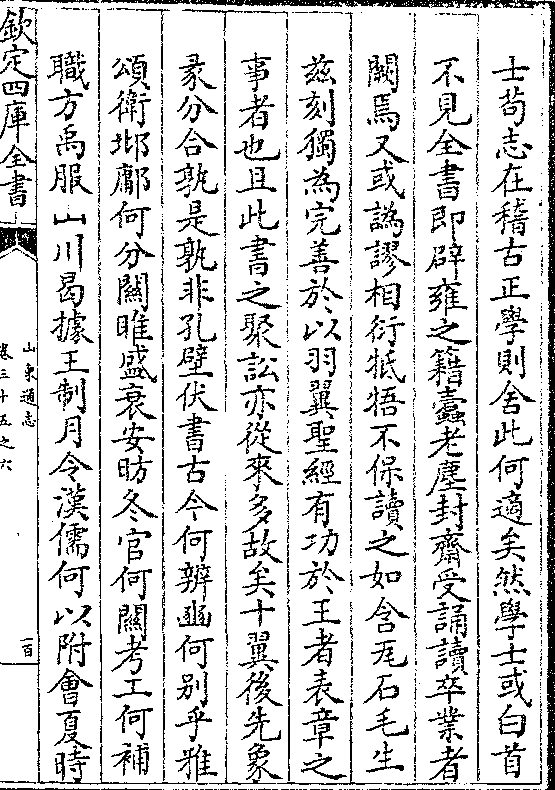 士苟志在稽古正學則舍此何適矣然學士或白首
不見全書即辟雍之籍蠹老塵封齋受誦讀卒業者
闕焉又或譌謬相衍牴牾不保讀之如含瓦石毛生
兹刻獨為完善於以羽翼聖經有功於王者表章之
事者也且此書之聚訟亦從來多故矣十翼後先象
彖分合孰是孰非孔壁伏書古今何辨豳何别乎雅
頌衛邶鄘何分關雎盛衰安昉冬官何闕考工何補
職方禹服山川曷據王制月令漢儒何以附會夏時
欽定四庫全書
山東通志
卷三十五之六
一百